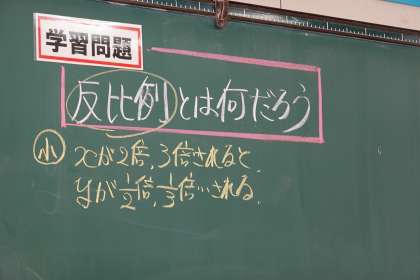 学習問題
反比例とは何だろう
小 xが2倍、3倍されると、
yが1/2倍、1/3倍…される。